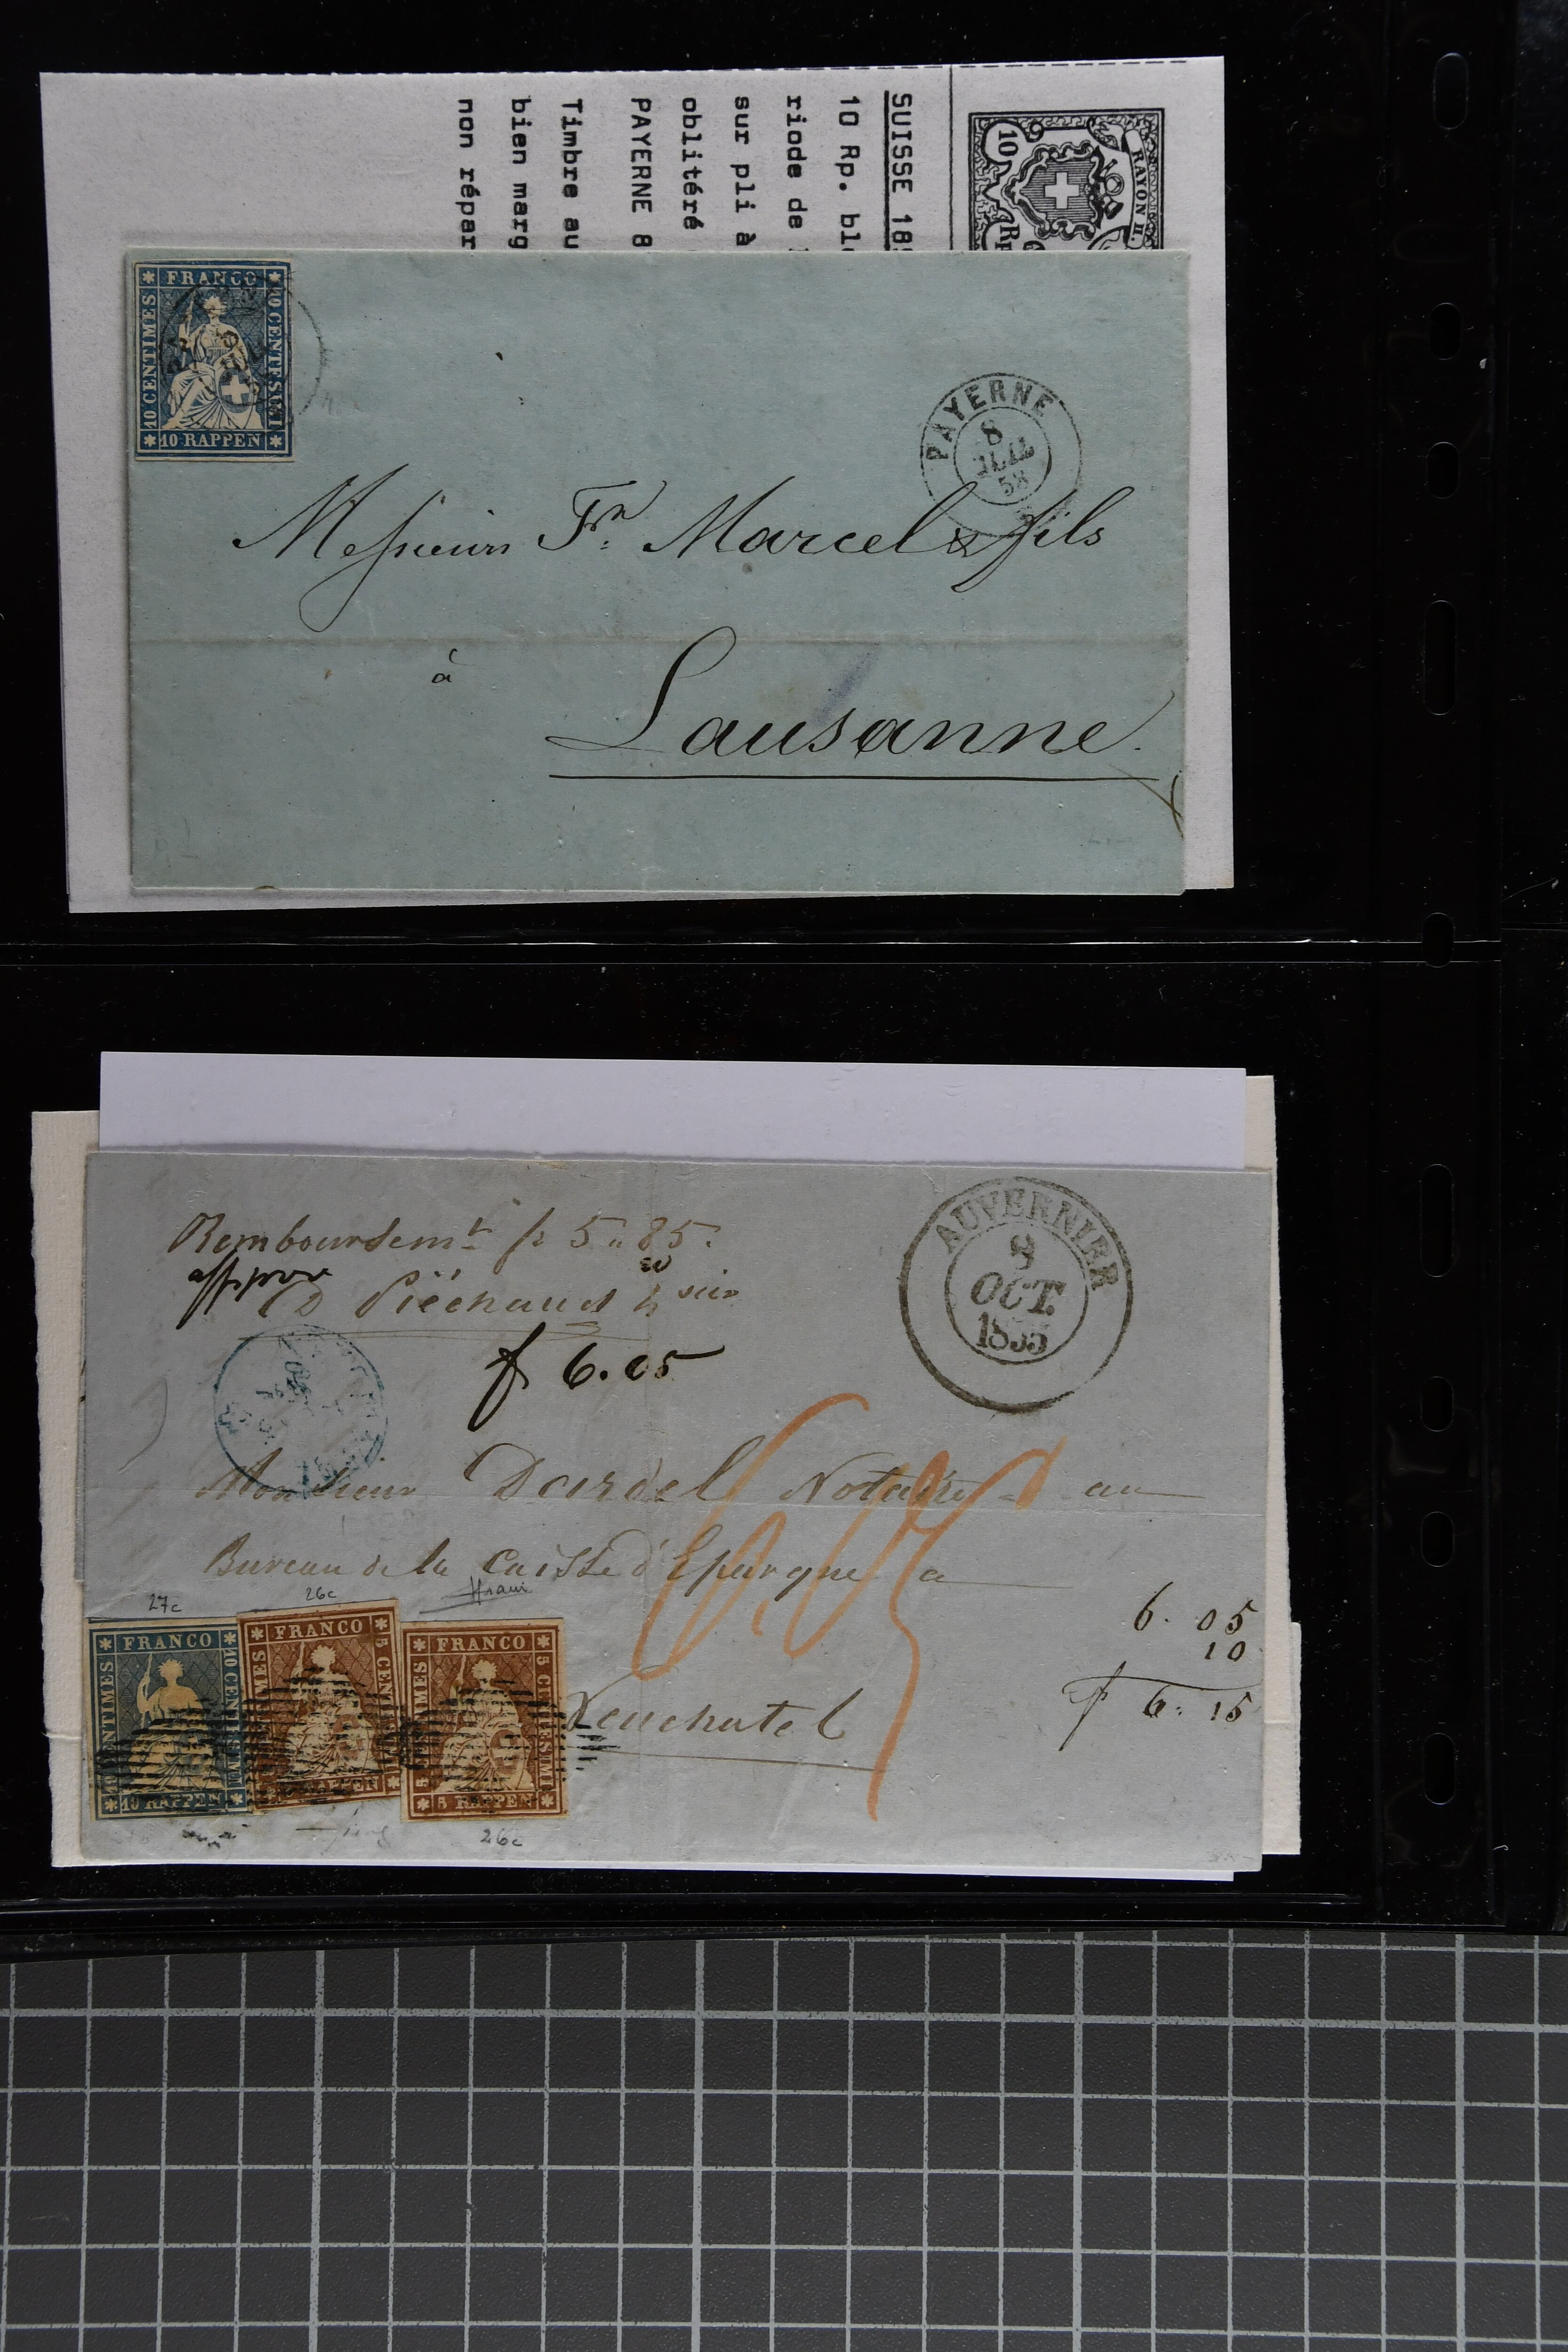 RAYON II.
10
SUISSE 18
10 Rp. bl
riode de
sur pli à
oblitéré
PAYERNE 8
Timbre au
bien marg
non répar
FRANCO
10 CENTIMES
10 CENTESIMI
10 RAPPEN
PAYERNE
8
JUIL
58
Messieurs Fr. Marcel & fils
à
Lausanne.
Remboursemt p 5 " 85.
D Piéchaud
f 6.05
AUVERNIER
9
OCT.
1855
Monsieur Dardel Notaire au
Bureau de la Caisse d'Epargne a
Neuchatel
6.15
6. 05
10
f 6. 15
27c
26c
Hrawi
FRANCO
10 CENTIMES
10 CENTESIMI
10 RAPPEN
FRANCO
5 CENTIMES
5 CENTESIMI
5 RAPPEN
FRANCO
5 CENTIMES
5 CENTESIMI
5 RAPPEN
26c